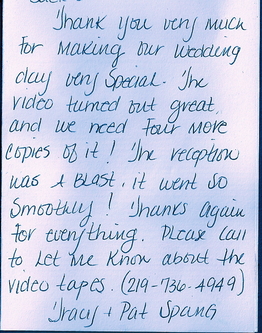 Thank you very much
for making our wedding
day very special. The
video turned out great,
and we need four more
copies of it! The reception
was a Blast, it went so
smoothly! Thanks again
for everything. Please call
to let me know about the
video tapes. (219-736-4949)
Tracy + Pat Spang